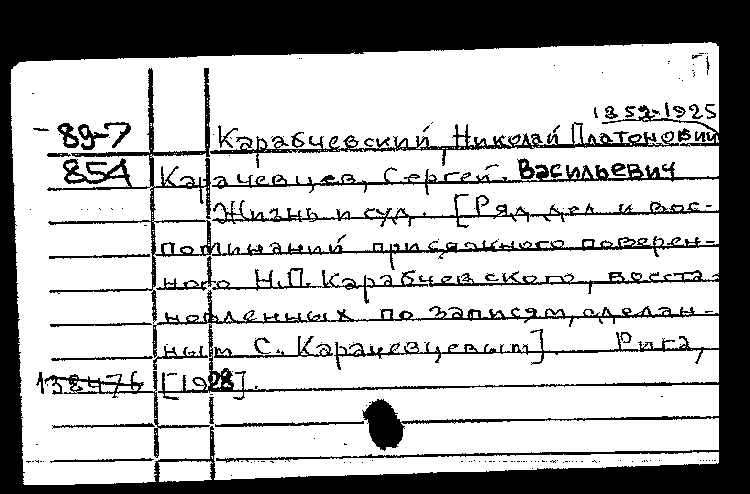 1859-1925
89-7 Карабчевский, Николай Платонович
854 Карачевцев, Сергей Васильевич
Жизнь и суд. [Ряд дел и вос-
поминаний присяжного поверен-
ного Н.П. Карабчевского, восста-
новленных по записям, сделан-
ным С. Карачевцевым]. Рига,
138476 [1928].